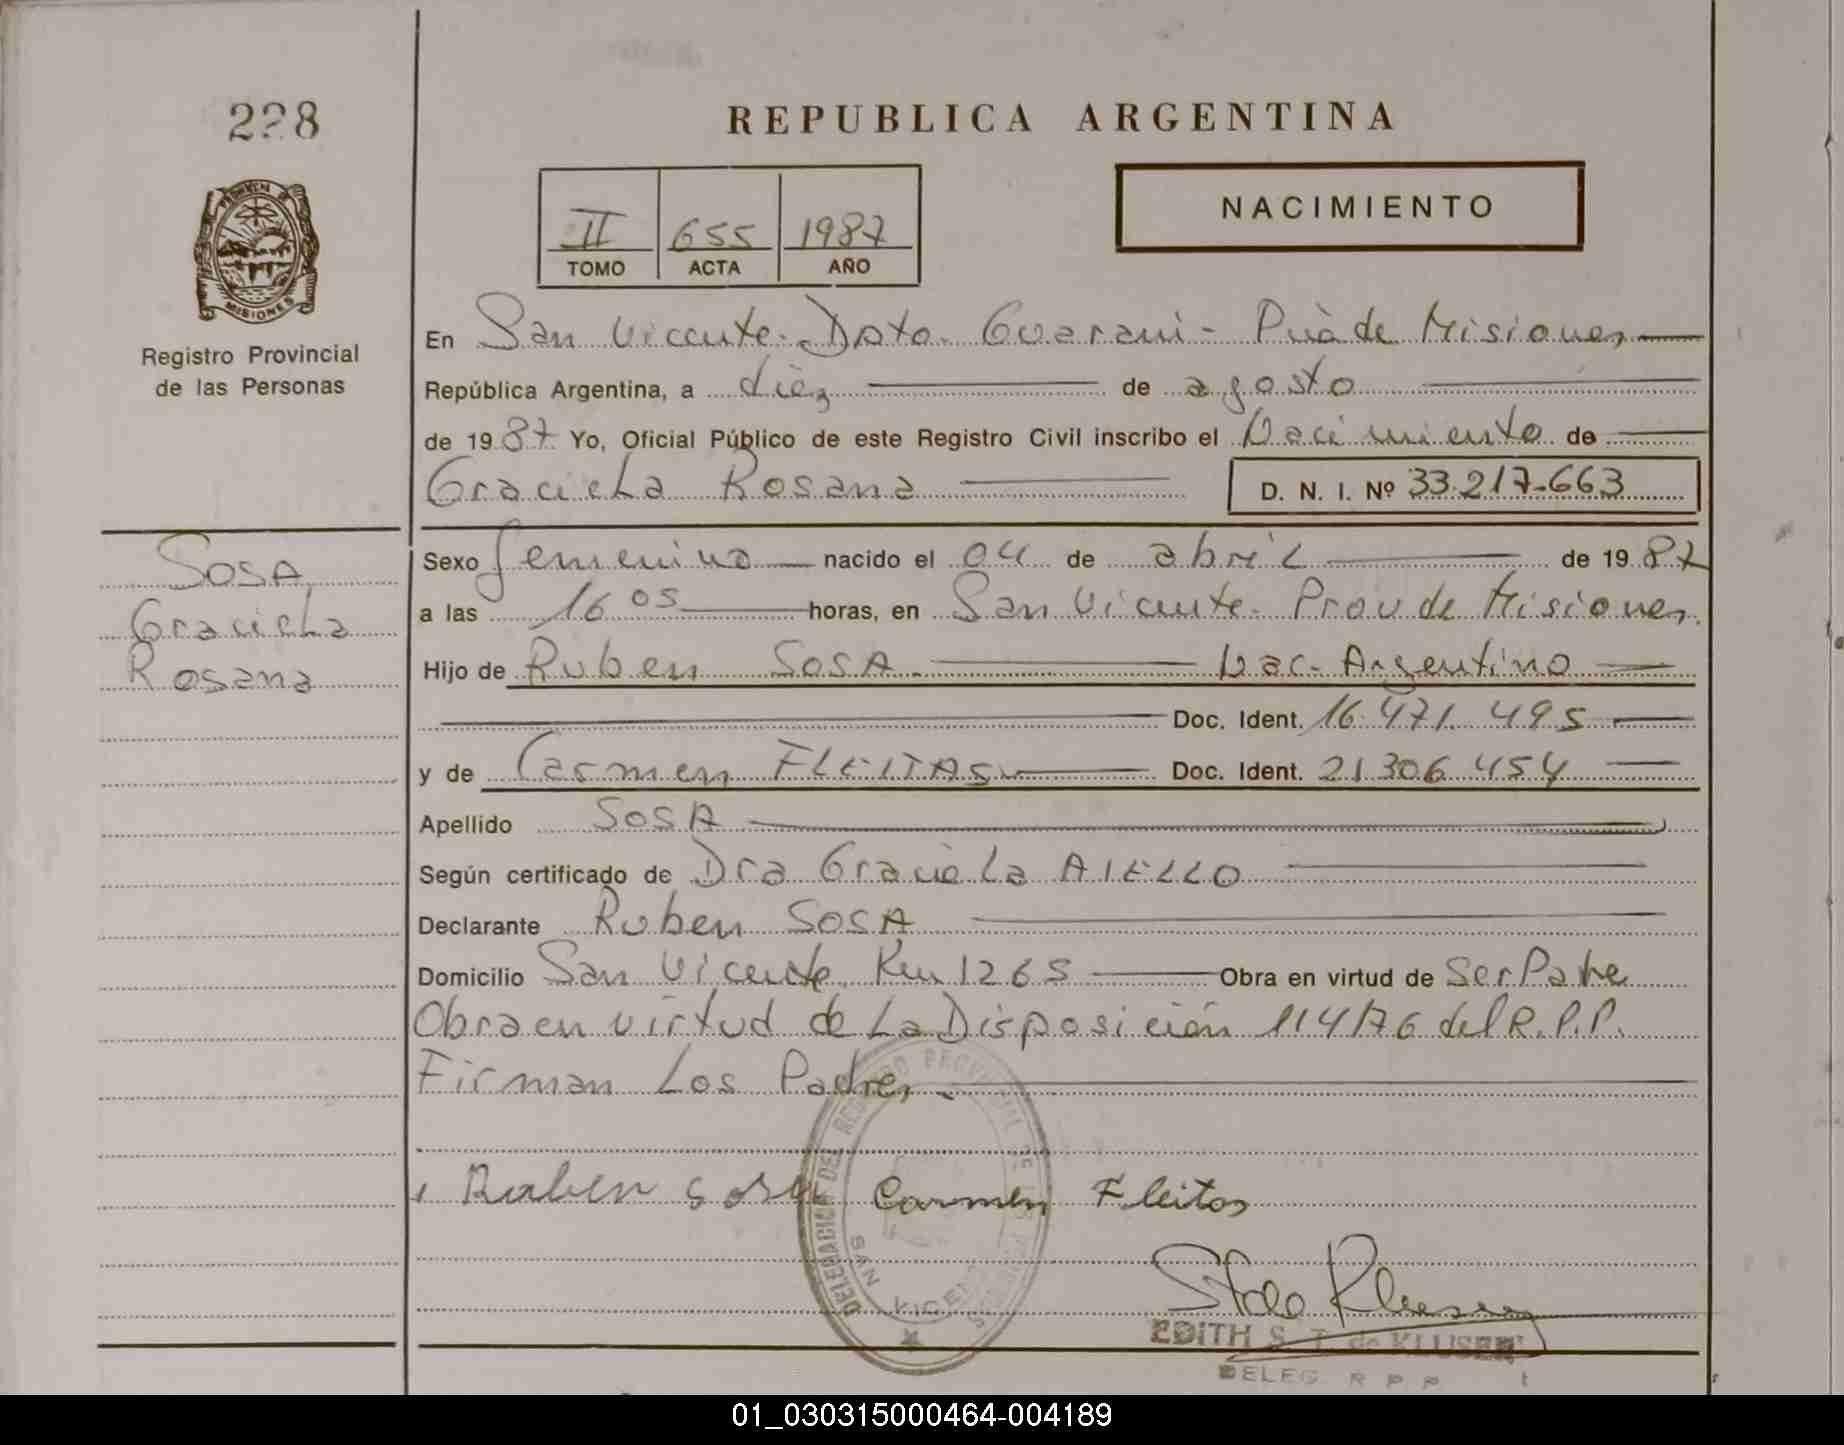 228
PROVINCIA DE
MISIONES
Registro Provincial
de las Personas
SOSA
Graciela
Rosana
REPUBLICA ARGENTINA
II 655 1987
TOMO ACTA AÑO
NACIMIENTO
En San Vicente - Dpto. Guarani - Pcia de Misiones
República Argentina, a diez de agosto
de 1987 Yo, Oficial Público de este Registro Civil inscribo el Nacimiento de
Graciela Rosana D. N. I. Nº 33.217.663
Sexo femenino nacido el 04 de abril de 1987
a las 16 05 horas, en San Vicente - Prov de Misiones.
Hijo de Ruben SOSA. Nac. Argentino
Doc. Ident. 16.471.495
y de Carmen FLEITAS Doc. Ident. 21.306.454
Apellido SOSA
Según certificado de Dra Graciela AIELLO
Declarante Ruben SOSA
Domicilio San Vicente Km 1265 Obra en virtud de Ser Padre
Obra en virtud de La Disposición 114/76 del R.P.P.
Firman Los Padres
Ruben Sosa Carmen Fleitas
DELEGACION DEL REGISTRO PROVINCIAL DE LAS PERSONAS
SAN VICENTE
EDITH S. T. de KLUSER
DELEG. R P P
01_030315000464-004189